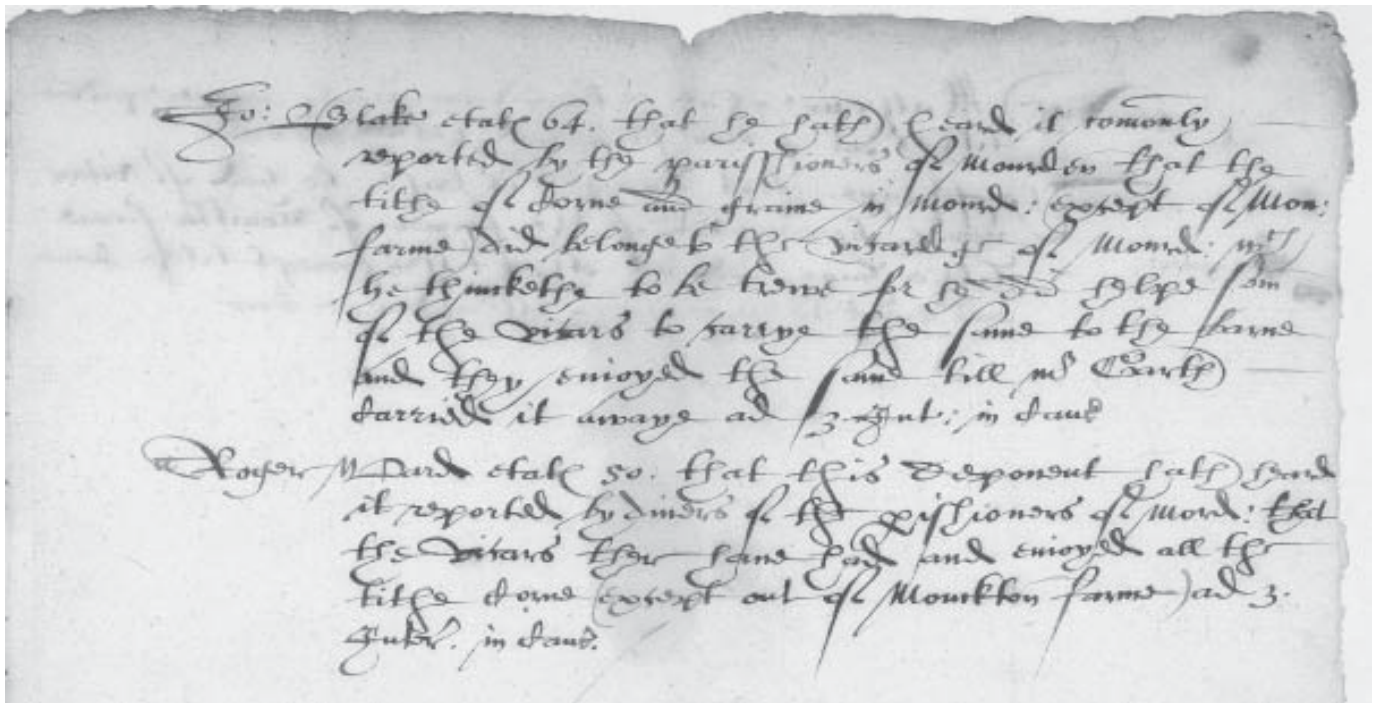 Jo: Blake etat 64. that he hath heard it comonly
reported by the parisshioners of Mourden that the
tithe of Corne and Graine in Mourd: except of Mon:
farme) did belonge to the vicaredge of Mourd: wch
he thinckethe to be trewe for he did helpe som
of the vicars to carrye the same to the barne
and they enioyed the same till mr
Carried it awaye ad 3 Int: in Caus
Roger Ward etat 50. that this Deponent hath heard
it reported by divers of the pishioners of Mord: that
the vicars ther have had and enioyed all the
tithe Corne (except out of Monckton farme) ad 3.
Inter. in Caus.